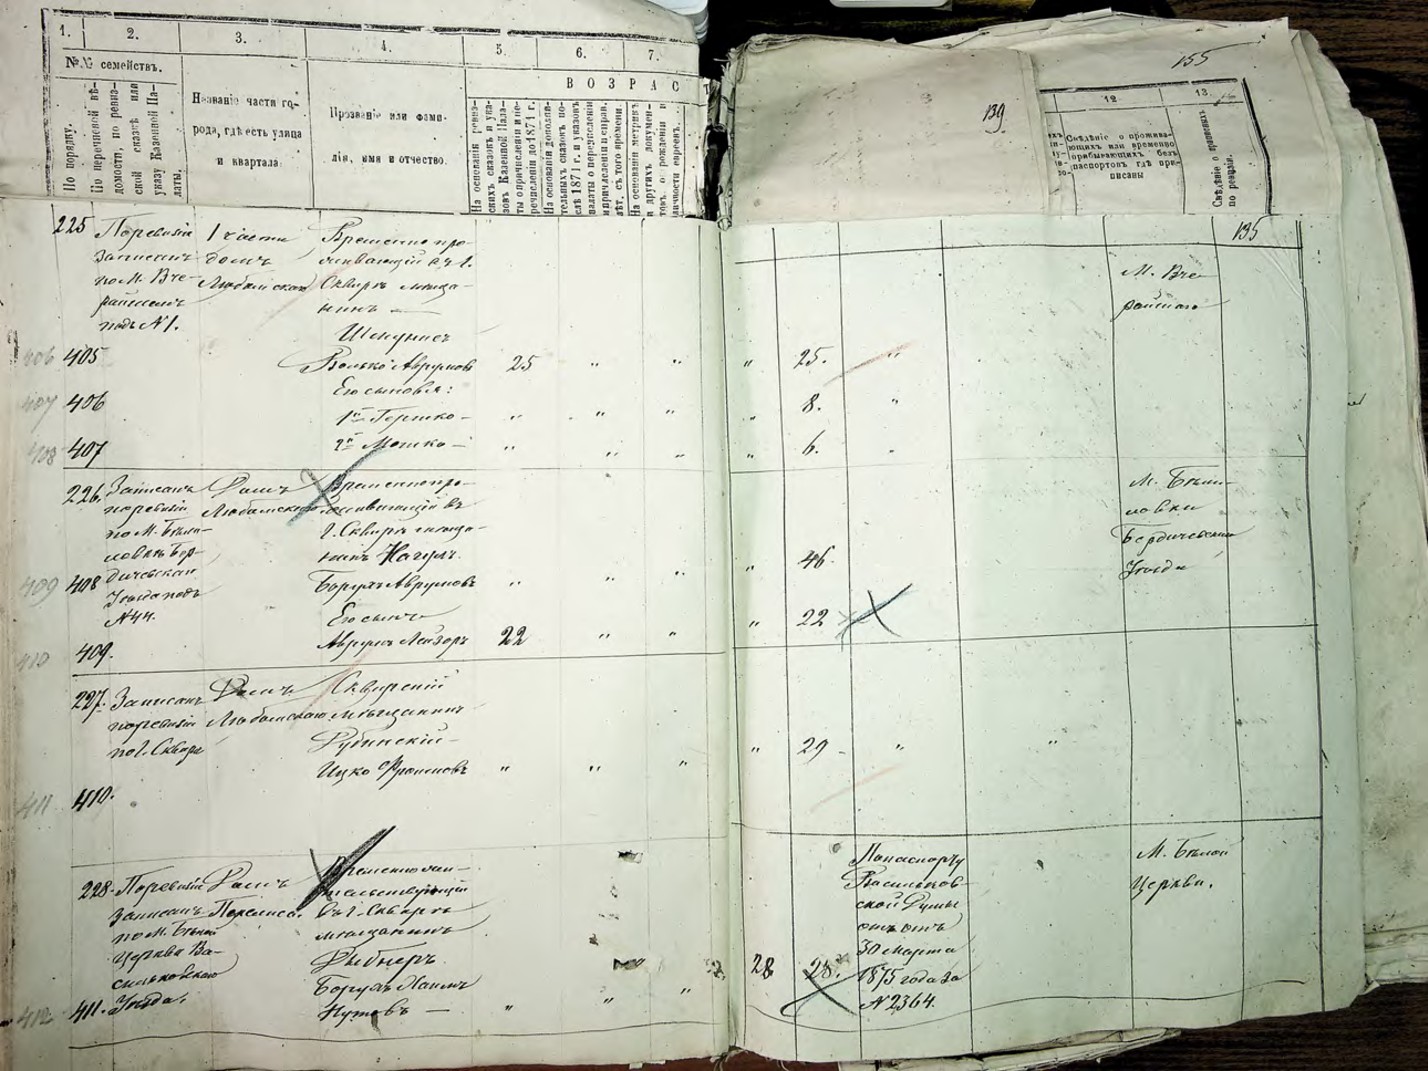 1.
2.
3.
4.
5.
6.
7.
№№ семействъ.
По порядку.
По перечневой вѣ-
домости, по ревиз-
ской сказкѣ или
указу Казенной Па-
латы.
Названіе части го-
рода, гдѣ есть улица
и квартала.
Прозваніе или фами-
лія, имя и отчество.
ВОЗРАСТ
На основаніи ревиз-
скихъ сказокъ и ука-
зовъ Казенной Пала-
ты о причисленіи и пе-
речисленіи до 1871 г.
На основаніи дополни-
тельныхъ сказокъ по-
слѣ 1871 г. и указовъ
палаты о перечисленіи
и причисленіи и справ.
лѣт. съ того времени.
На основаніи метрик
и другихъ докумен-
товъ о рожденіи и
личности евреевъ.
139
155
12.
13.
Свѣдѣніе о прожива-
ющихъ или временно
прибывающихъ безъ
паспортовъ гдѣ при-
писаны
Свѣдѣніе о приписныхъ
по ревизіи.
135
225
По ревизіи
записанъ
по М. Вче-
райшемъ
подъ № 1.
1 части
домъ
Любамской
Временно про-
живающій въ г.
Сквирѣ мѣща-
нинъ —
М. Вче-
райшаго
406 405
Волько Аврумовъ
25 " " " 25. "
Его сыновья:
407 406
1й Гершко —
" " " " 8. "
408 407
2й Мошко —
" " " " 6. "
226.
Записанъ
по ревизіи
по М. Бѣли-
ловкѣ Бер-
дичевскаго
Уѣзда подъ
№ 44.
Домъ
Любамской
Временно про-
живающій въ
г. Сквирѣ мѣща-
нинъ Нагулъ.
М. Бѣли-
ловки
Бердичевскаго
Уѣзда
409 408
Борухъ Аврумовъ
" " " " 46.
Его сынъ
410 409.
Аврумъ Лейзоръ
22 " " " 22
227.
Записанъ
по ревизіи
по г. Сквирѣ
Домъ
Любамской
Сквирскій
мѣщанинъ
Рубинскій —
Ицко Фроимовъ
" " " " 29 " "
411 410.
228.
По ревизіи
записанъ
по М. Бѣлой
Церкви Ва-
сильковскаго
Уѣзда.
Домъ
Временно жи-
тельствующій
въ г. Сквирѣ
мѣщанинъ
Рыбнеръ.
Борухъ Хаимъ
412 411.
" " " 28 28.
По паспорту
Васильков-
ской Думы
отъ
30 марта
1875 года за
№ 2364.
М. Бѣлой
Церкви.